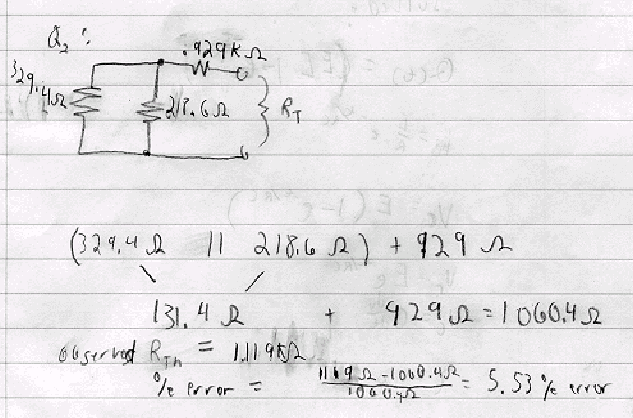 Q₂ :
.929KΩ
329.4Ω
218.6Ω
R_T
(329.4 Ω || 218.6 Ω) + 929 Ω
131.4 Ω + 929 Ω = 1060.4 Ω
observed R_Th = 1.119KΩ
% error = (1119Ω - 1060.4Ω) / 1060.4Ω = 5.53 % error